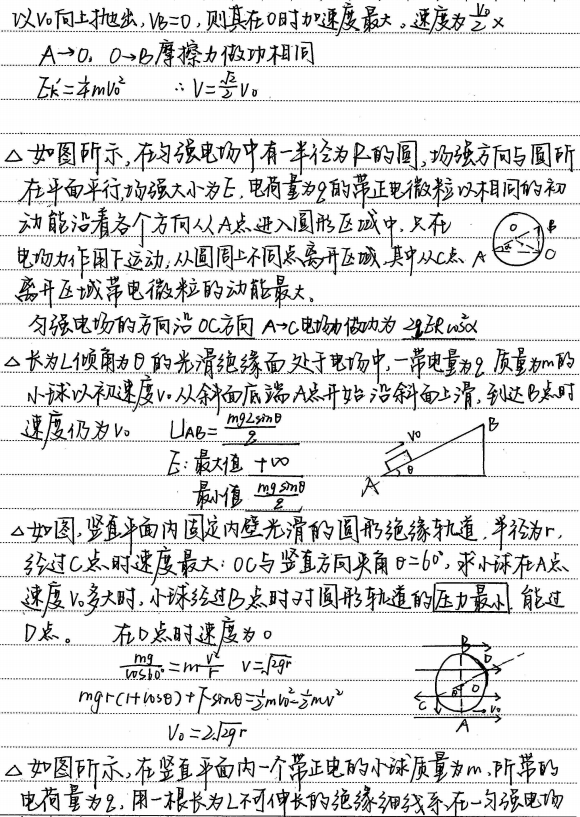 以V₀向上抛出，VB=0，则其在O时加速度最大。速度为V₀/2 ×
A→O，O→B摩擦力做功相同
Ek'=1/4mV₀²  ∴V=√2/2V₀
△如图所示，在匀强电场中有一半径为R的圆，场强方向与圆所
在平面平行，场强大小为E，电荷量为q的带正电微粒以相同的初
动能沿着各个方向从A点进入圆形区域中，只在
电场力作用下运动，从圆周上不同点离开区域，其中从C点
离开区域带电微粒的动能最大。
O B A α
匀强电场的方向沿OC方向 A→C电场力做功为 2qERcos²α
△长为L倾角为θ的光滑绝缘面处于电场中，一带电量为q 质量为m的
小球以初速度V₀从斜面底端A点开始沿斜面上滑，到达B点时
速度仍为V₀  UAB=mgLsinθ/q
E：最大值 +∞
最小值 mgsinθ/q
V₀ B A θ
△如图，竖直平面内固定内壁光滑的圆形绝缘轨道，半径为r，
经过C点时速度最大：OC与竖直方向夹角θ=60°，求小球在A点
速度V₀多大时，小球经过B点时对圆形轨道的压力最小 能过
D点。 在D点时速度为0
mg/cos60°=mV²/r  V=√2gr
mgr(1+cosθ)+F·sinθ=1/2mV₀²-1/2mV²
V₀=2√2gr
B D O θ C V₀ A
△如图所示，在竖直平面内一个带正电的小球质量为m，所带的
电荷量为q，用一根长为L不可伸长的绝缘细线系在一匀强电场